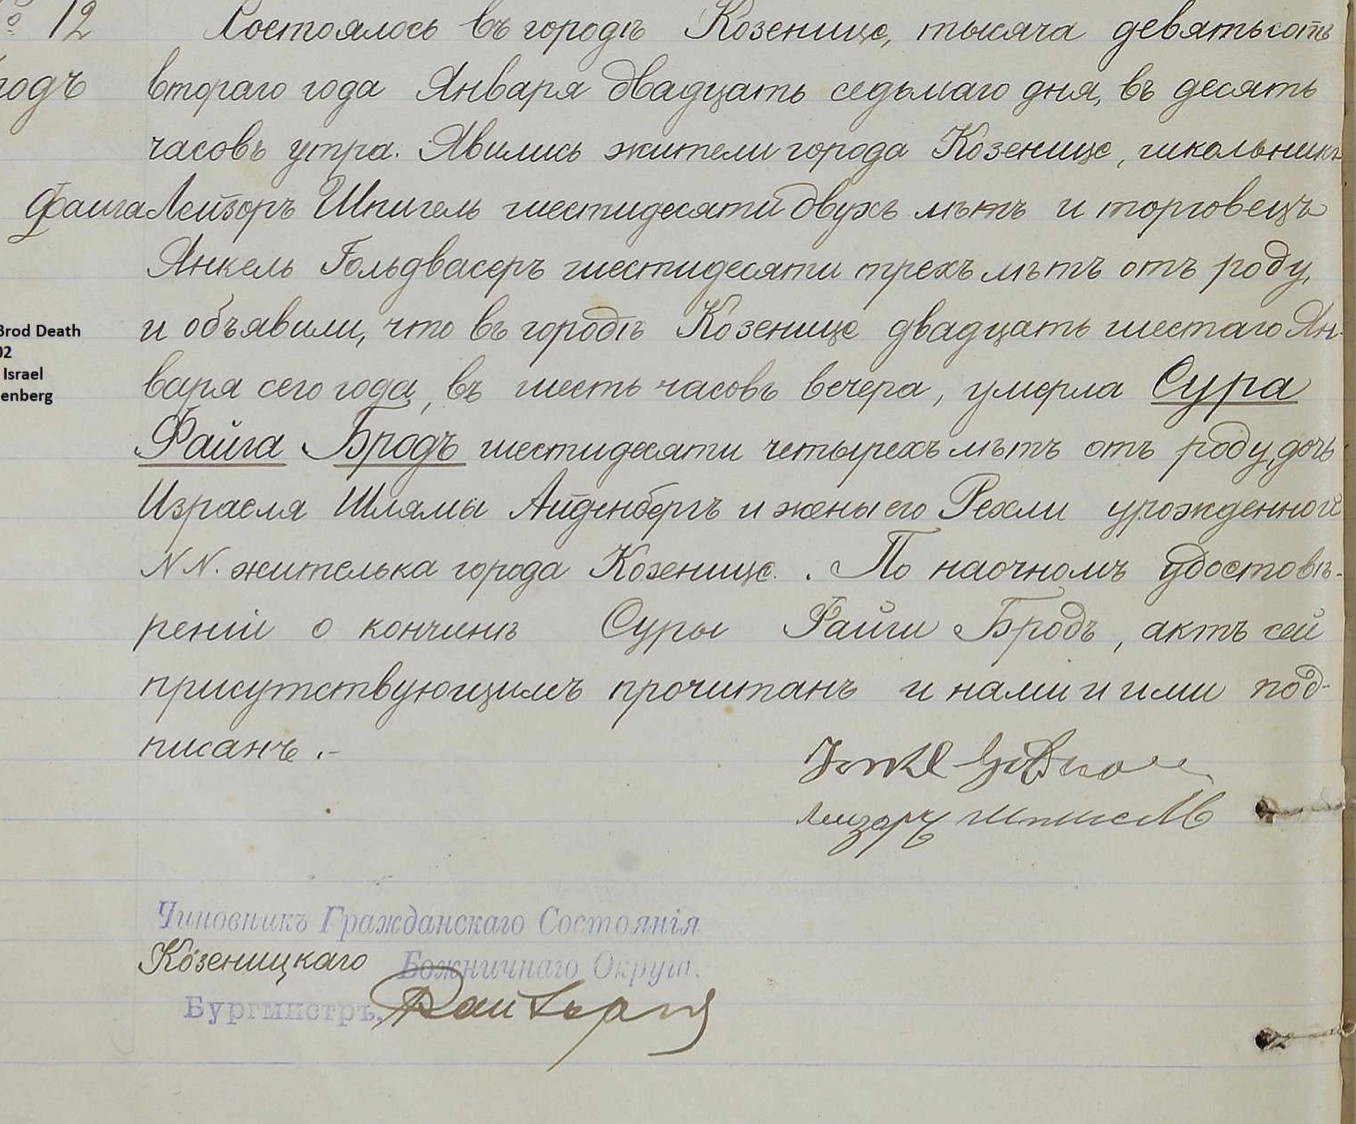 № 12
Состоялось въ городѣ Козенице, тысяча девятьсотъ
втораго года Января двадцать седьмаго дня, въ десять
часовъ утра. Явились жители города Козенице, школьникъ
Файга
Лейзоръ Шпигель шестидесяти двухъ лѣтъ и торговецъ
Янкель Гольдвасеръ шестидесяти трехъ лѣтъ отъ роду,
и объявили, что въ городѣ Козенице двадцать шестаго Ян-
варя сего года, въ шесть часовъ вечера, умерла Сура
Файга Бродъ шестидесяти четырехъ лѣтъ отъ роду, дочь
Израеля Шлямы Айденбергъ и жены его Рехли урожденной
N N. жителька города Козенице. . По наочномъ удостовѣ-
реніи о кончинѣ Суры Файги Бродъ, актъ сей
присутствующимъ прочитанъ и нами и ими под-
писанъ .-
Brod Death
02
Israel
enberg
Лейзоръ Шпигель
Чиновникъ Гражданскаго Состоянія
Козеницкаго Божничнаго Округа.
Бургмистръ,